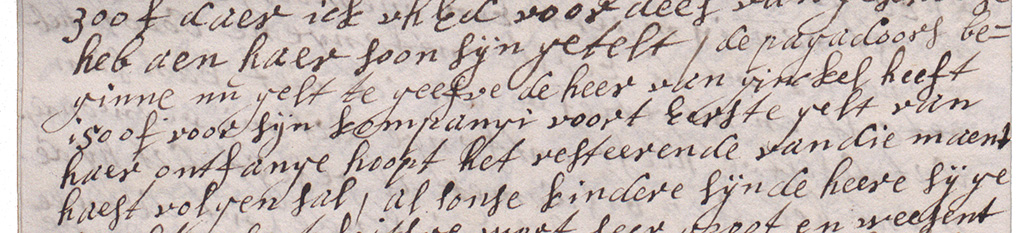 300f daer ick vhEd voor dees van
heb aen haer soon sijn getelt, de pagadoors be=
ginne nu gelt te geefve de heer van ginckel heeft
1500f voor sijn kompangi voort eerste gelt van
haer ontfange hoopt het resteerende van die maent
haest volgen sal, al lonse kindere sijn de heere sij ge
wort seer groot en weesent